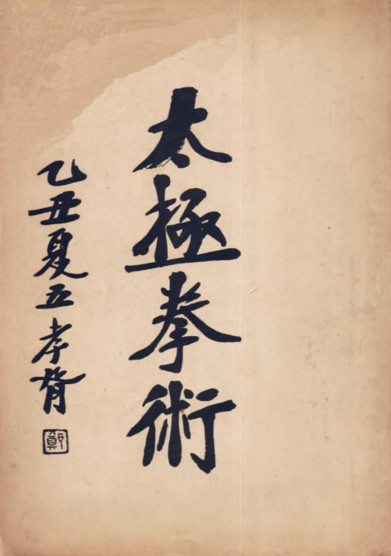 太極拳術
乙丑夏五孝胥
鄭